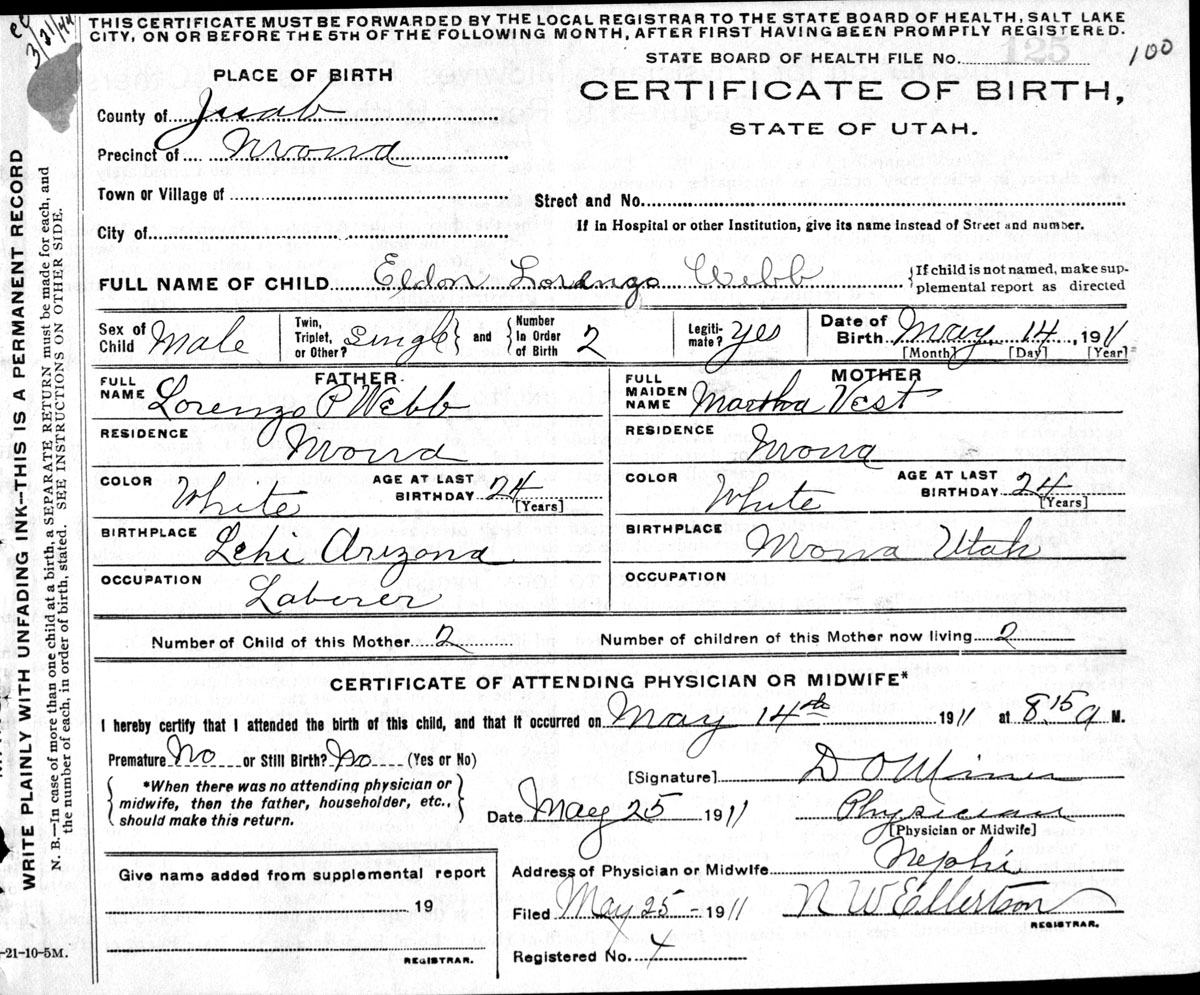 THIS CERTIFICATE MUST BE FORWARDED BY THE LOCAL REGISTRAR TO THE STATE BOARD OF HEALTH, SALT LAKE
CITY, ON OR BEFORE THE 5TH OF THE FOLLOWING MONTH, AFTER FIRST HAVING BEEN PROMPTLY REGISTERED.
3/21/44
STATE BOARD OF HEALTH FILE No. 100
PLACE OF BIRTH
CERTIFICATE OF BIRTH,
STATE OF UTAH.
County of Juab
Precinct of Mona
Town or Village of
Street and No.
City of
If in Hospital or other Institution, give its name instead of Street and number.
FULL NAME OF CHILD Eldon Lorenzo Webb {If child is not named, make sup-
plemental report as directed
Sex of Child Male Twin, Triplet, or Other? Single and Number In Order of Birth 2 Legiti-mate? Yes Date of Birth May 14, 1911
[Month] [Day] [Year]
FATHER
FULL NAME Lorenzo P Webb
RESIDENCE Mona
COLOR White AGE AT LAST BIRTHDAY 24
[Years]
BIRTHPLACE Lehi Arizona
OCCUPATION Laborer
MOTHER
FULL MAIDEN NAME Martha Vest
RESIDENCE Mona
COLOR White AGE AT LAST BIRTHDAY 24
[Years]
BIRTHPLACE Mona Utah
OCCUPATION
Number of Child of this Mother 2 Number of children of this Mother now living 2
CERTIFICATE OF ATTENDING PHYSICIAN OR MIDWIFE*
I hereby certify that I attended the birth of this child, and that it occurred on May 14th 1911 at 8 15 a M.
Premature No or Still Birth? No (Yes or No)
*When there was no attending physician or
midwife, then the father, householder, etc.,
should make this return.
[Signature] D O Miner
Date May 25 1911 Physician
[Physician or Midwife]
Address of Physician or Midwife Nephi
Filed May 25 - 1911 N W Ellertson
REGISTRAR.
Registered No. 4
Give name added from supplemental report
19
REGISTRAR.
-21-10-5M.
WRITE PLAINLY WITH UNFADING INK—THIS IS A PERMANENT RECORD
N. B.—In case of more than one child at a birth, a SEPARATE RETURN must be made for each, and
the number of each, in order of birth, stated. SEE INSTRUCTIONS ON OTHER SIDE.